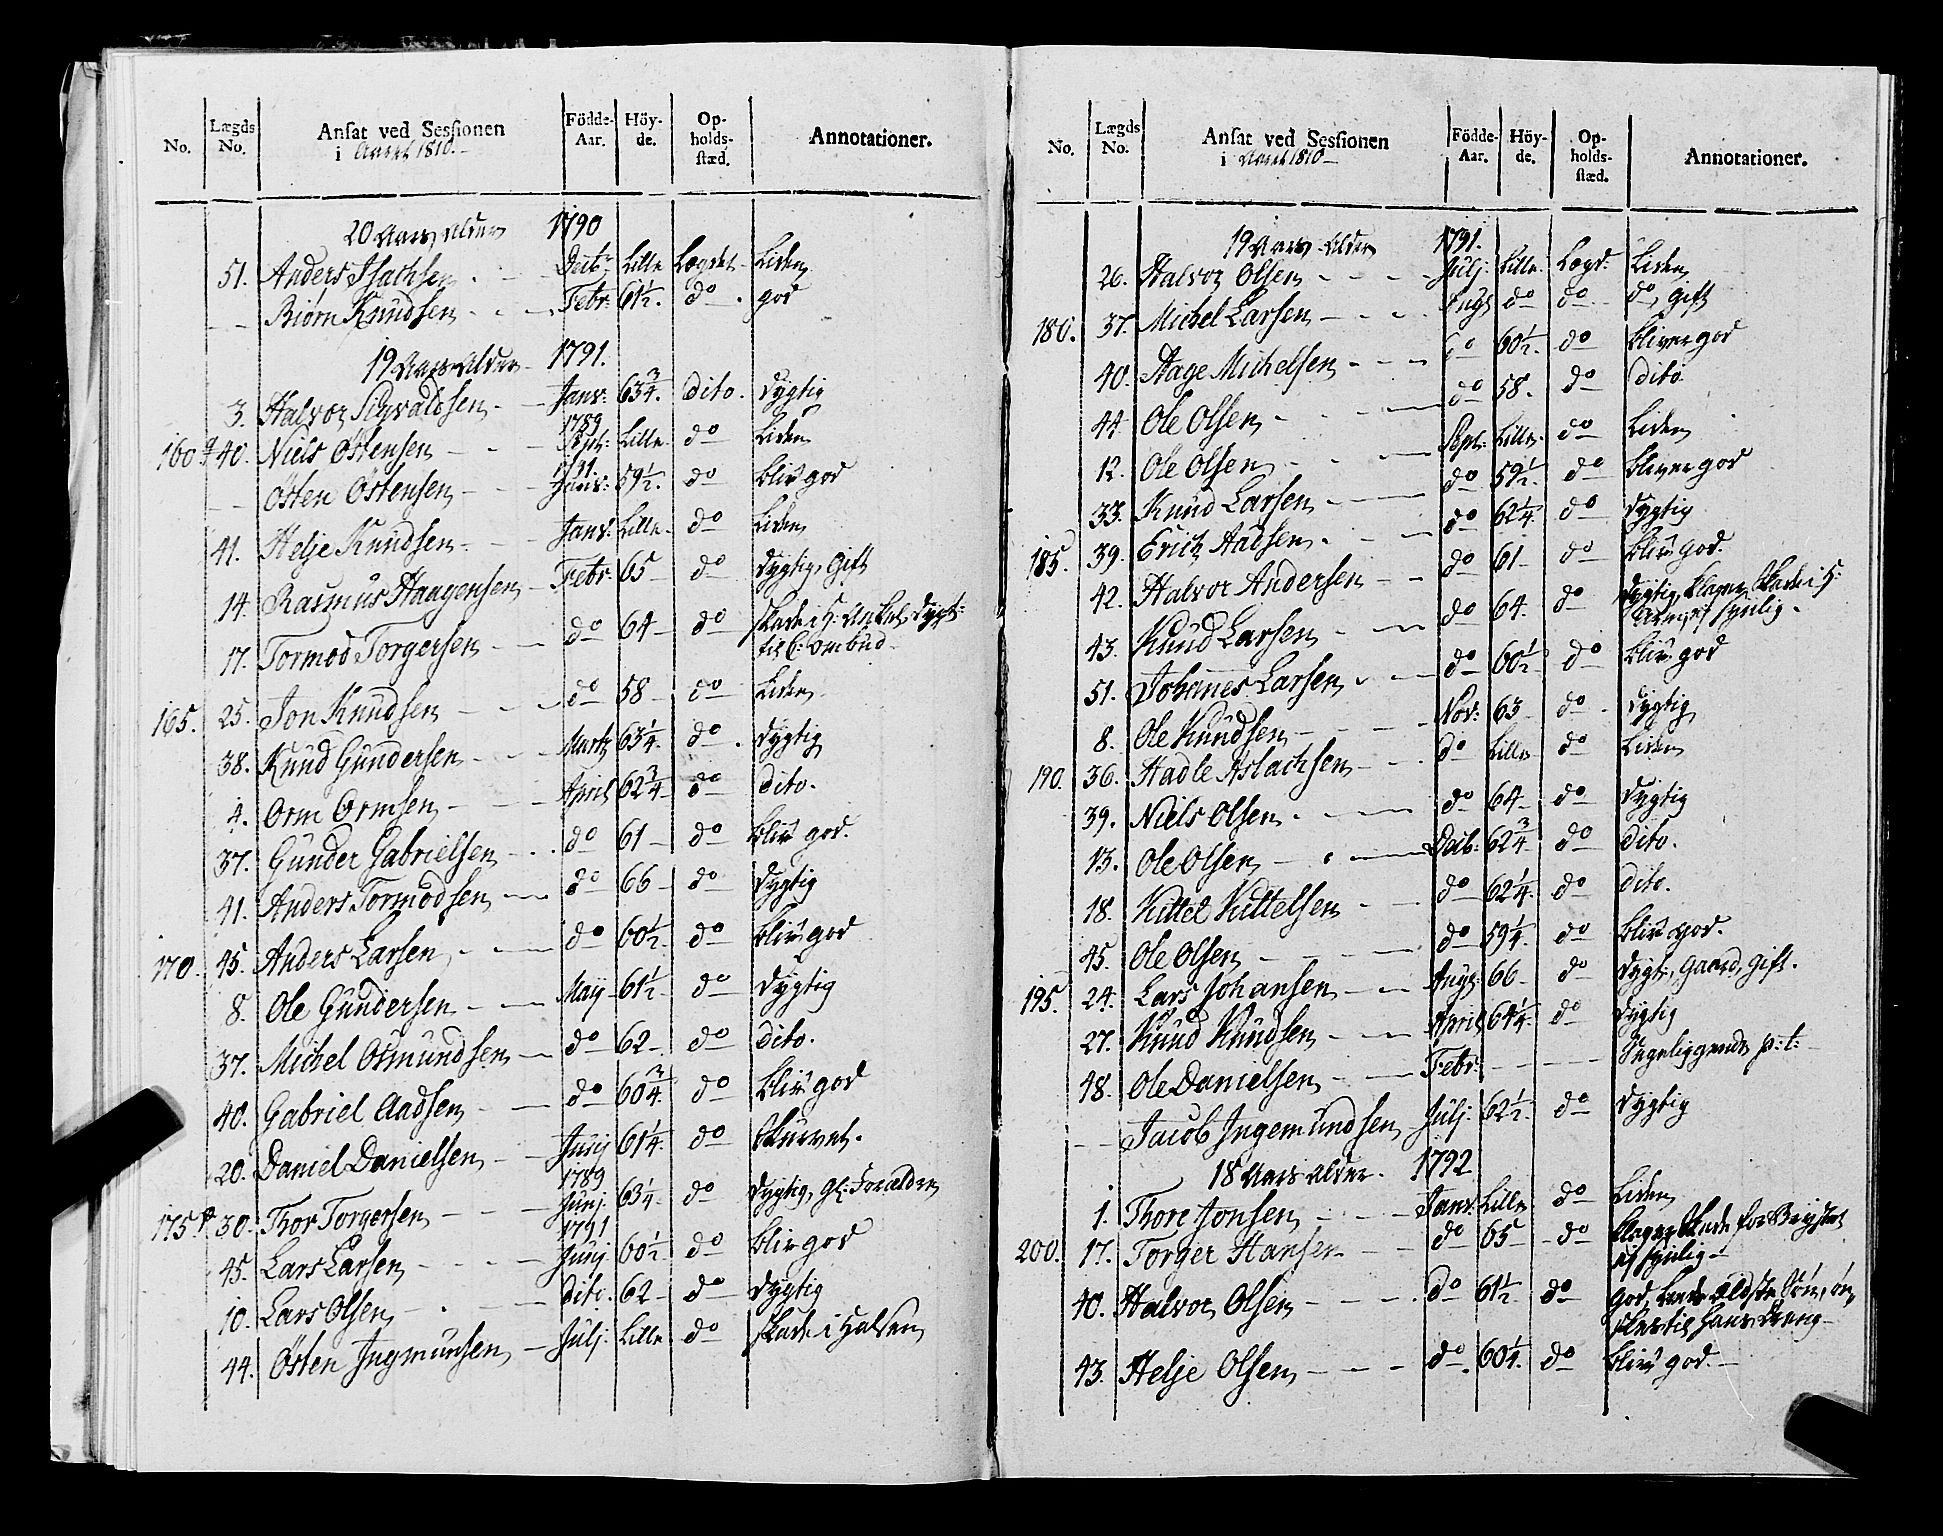 No. Lægds No. Ansat ved Sessionen i Aaret 1810. Födde-Aar. Höy-de. Op-holds-stæd. Annotationer.
20 Aars Alder 1790
51. Anders Isachsen Decbr Lille Lægdet Liden
Biørn Knudsen Febr: 61½. do god
19 Aars Alder 1791.
3. Halvor Sigvaldsen Janv: 63¾. dito. dygtig
1789
160 40. Niels Östensen Sept: Lille do Liden
1791.
Östen Östensen Janv: 59½. do bliv god
41. Helje Knudsen Janv: Lille do Liden
14. Rasmus Haagensen Febr: 65 do dygtig, Gift
17. Tormod Torgersen do 64 do skade i h: Ankel, dygt:
til C: ombud
165. 25. Jon Knudsen do 58 do Liden
38. Knud Gundersen Martz 63¼. do dygtig
4. Orm Ormsen April 62¾ do dito.
37. Gunder Gabrielsen do 61 do bliv god.
41. Anders Tormodsen do 66 do dygtig
170. 45. Anders Larsen do 60½ do bliv god
8. Ole Gundersen May 61½ do dygtig
37. Michel Osmundsen do 62 do dito.
40. Gabriel Aadsen do 60¾ do bliv god
20. Daniel Danielsen Junj 61¼ do Skurvet.
1789
175 30. Thor Torgersen Junj. 63¼ do dygtig, gl: Forældre
1791
45. Lars Larsen Junj 60½ do bliv god
10. Lars Olsen dito. 62 do dygtig
44. Östen Ingmunsen Julj. Lille do skade i Halsen
No. Lægds No. Ansat ved Sessionen i Aaret 1810 Födde-Aar. Höy-de. Op-holds-stæd. Annotationer.
19 Aars Alder 1791.
26. Halvor Olsen Julj. Lille Lægd: Liden
180. 37. Michel Larsen Augs do do do, gift
40. Aage Michelsen do 60½. do bliver god
44 Ole Olsen do 58. do dito
12. Ole Olsen Sept: Lille do Liden
33. Knud Larsen do 59½ do bliver god
185. 39. Erich Aadsen do 62¼ do dygtig
42. Halvor Andersen do 61 do bliv god.
43. Knud Larsen do 64. do dygtig, klager skade i h:
Arm, ej synlig.
51. Johanes Larsen do 60½ do bliv god
8. Ole Knudsen Nov: 63 do dygtig
190. 36. Hadle Aslachsen do Lille do Liden
39. Niels Olsen do 64 do dygtig
13. Ole Olsen Decb: 62¾ do dito.
18. Kittel Kittelsen do 62¼ do dito.
45. Ole Olsen do 59¼ do bliv god.
195. 24. Lars Johansen Augs: 66 do dygt:, Gaard, gift.
27. Knud Knudsen April 64¼ do dygtig
48. Ole Danielsen Febr: Sengeliggende p: t:
Jacob Ingemundsen Julj. 62½ do dygtig
18 Aars Alder. 1792
1. Thore Jonsen Janv: Lille do Liden
200. 17. Torger Hansen do 65 do klager skade for Brystet
ej synlig
40. Halvor Olsen do 61½ do god, ældste Søn,
Hans Dreng
43. Helje Olsen do 60¼. do bliv god.